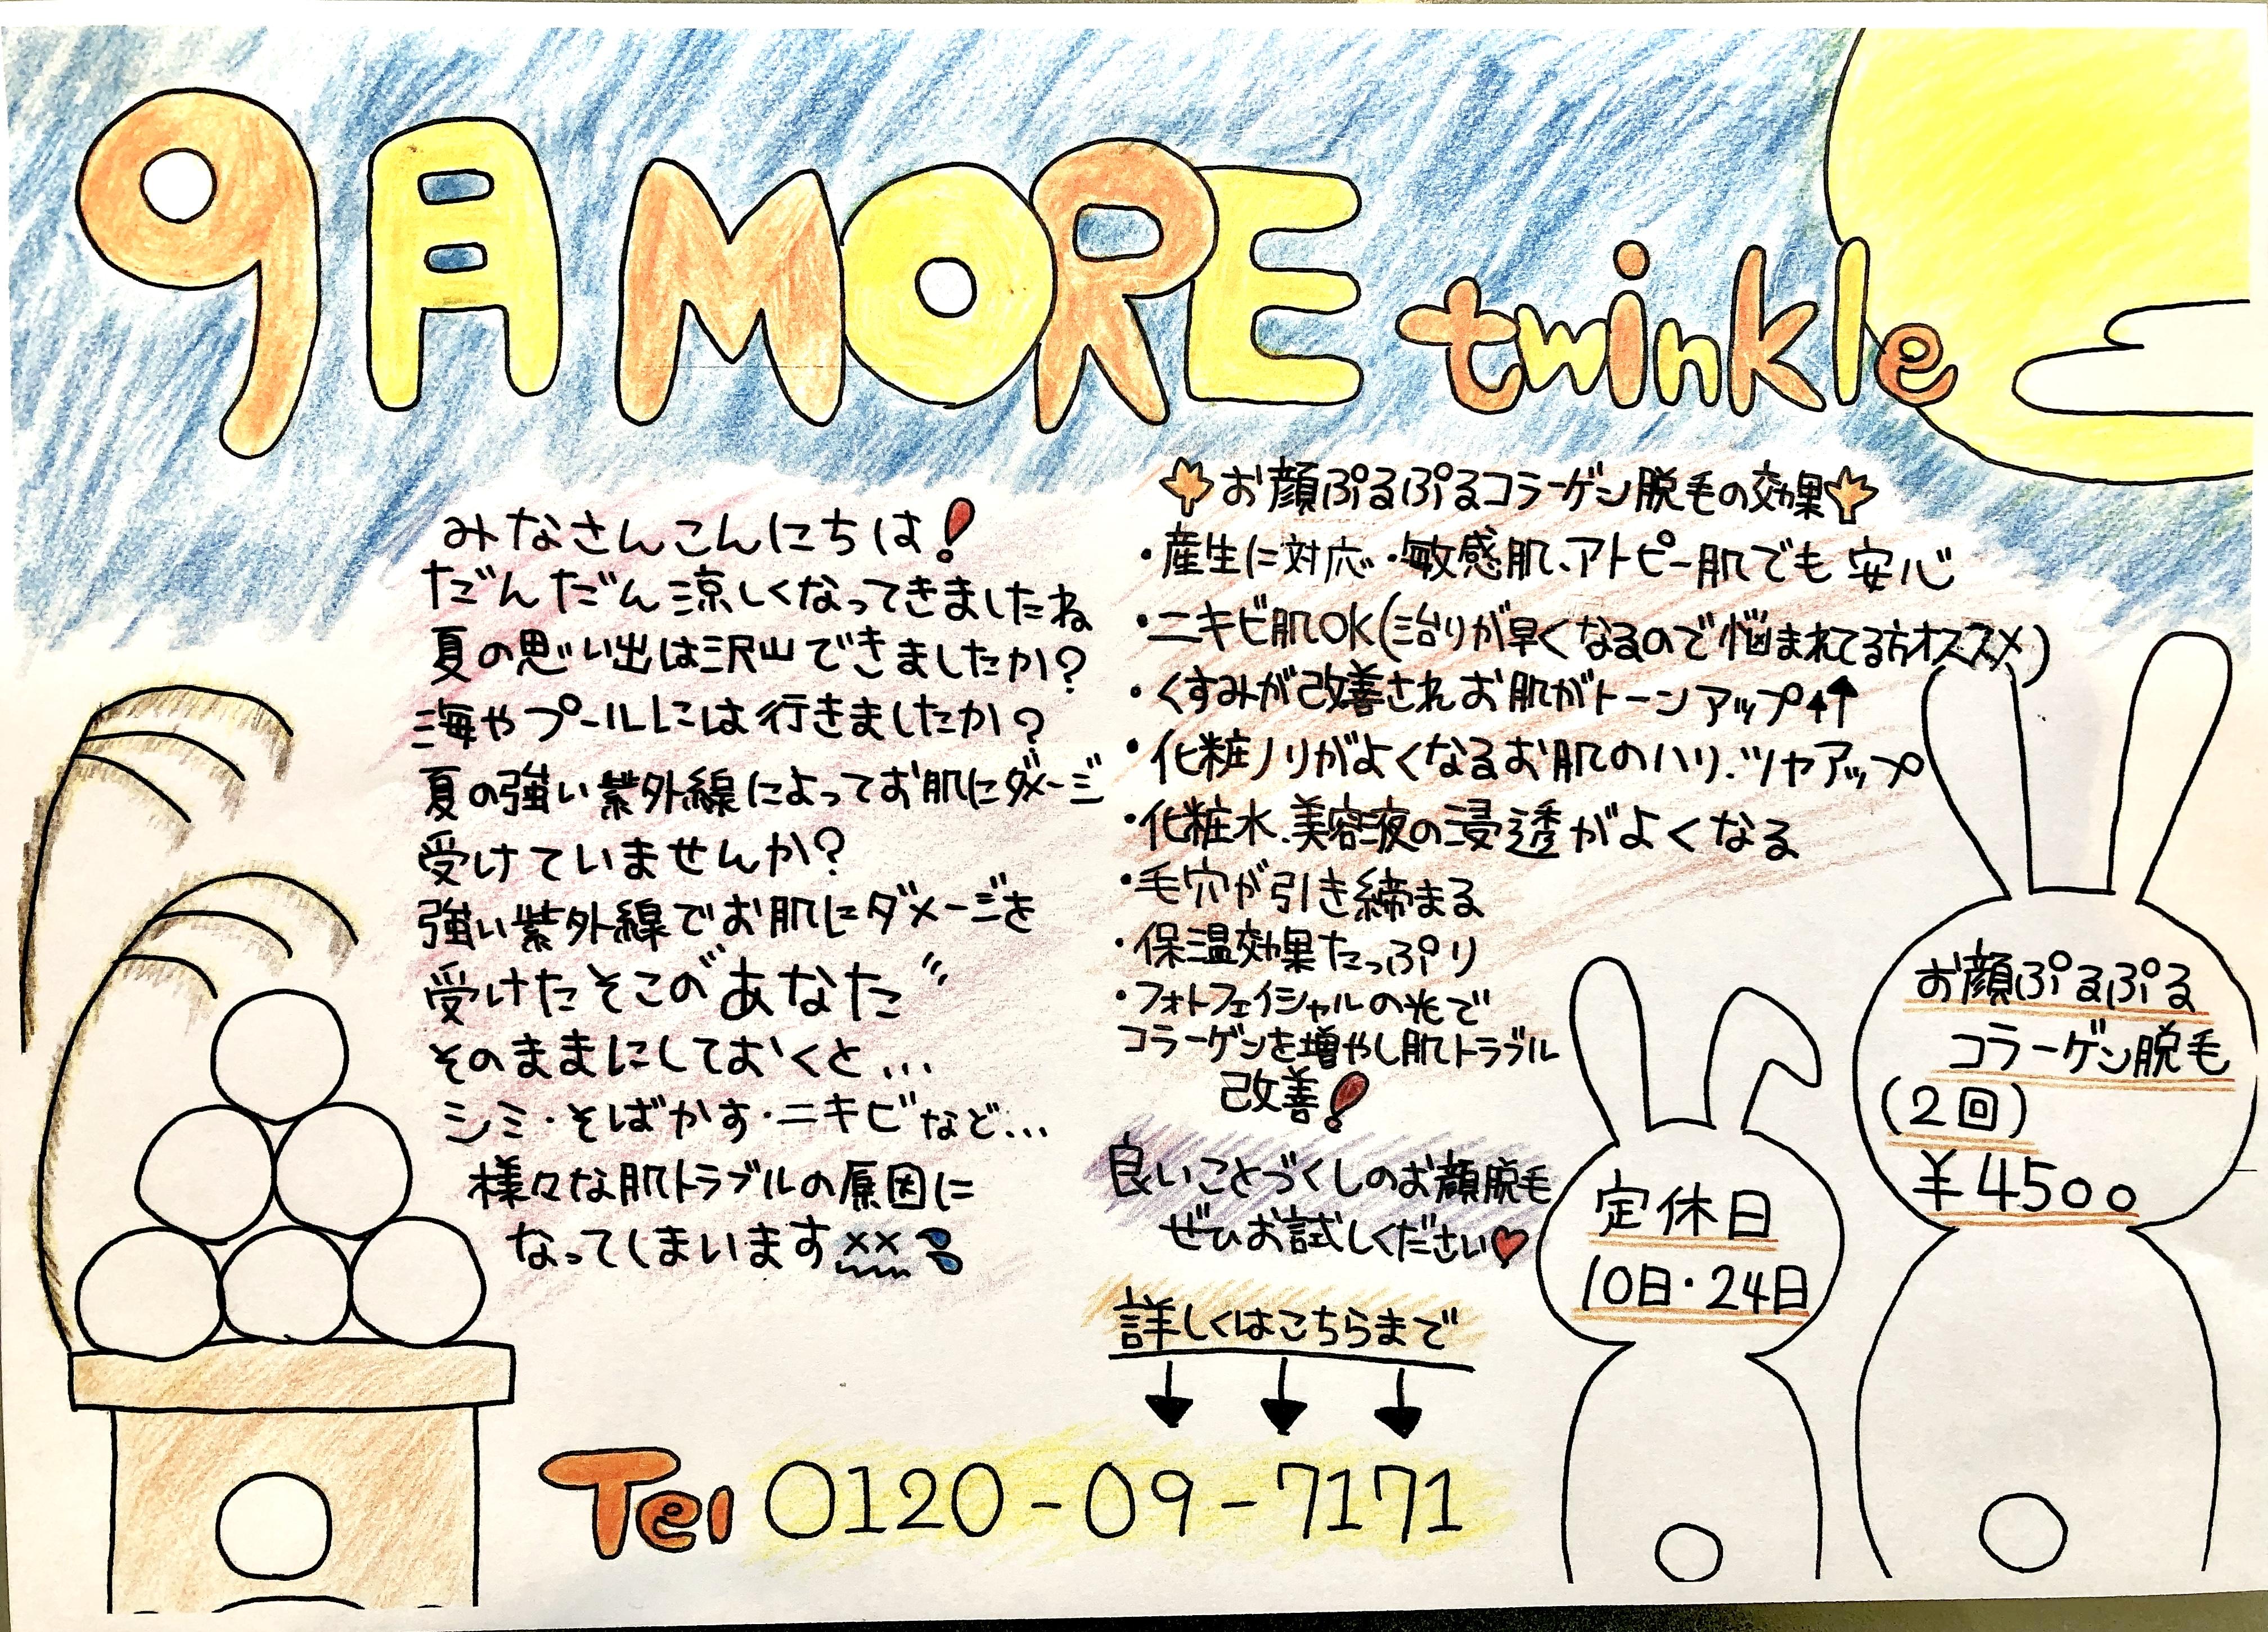 9月 MORE twinkle
みなさんこんにちは!
だんだん涼しくなってきましたね
夏の思い出は沢山できましたか?
海やプールには行きましたか?
夏の強い紫外線によってお肌にダメージ
受けていませんか?
強い紫外線でお肌にダメージを
受けたそこの"あなた"
そのままにしておくと...
シミ・そばかす・ニキビなど...
様々な肌トラブルの原因に
なってしまいます
お顔ぷるぷるコラーゲン脱毛の効果
・産生に対応・敏感肌、アトピー肌でも安心
・ニキビ肌OK(治りが早くなるので悩まれてる方オススメ)
・くすみが改善されお肌がトーンアップ↑↑
・化粧ノリがよくなるお肌のハリ.ツヤアップ
・化粧水.美容液の浸透がよくなる
・毛穴が引き締まる
・保温効果たっぷり
・フォトフェイシャルの光で
コラーゲンを増やし肌トラブル
改善!
良いことづくしのお顔脱毛
ぜひお試しください♡
詳しくはこちらまで
↓ ↓ ↓
Tel 0120-09-7171
定休日
10日・24日
お顔ぷるぷる
コラーゲン脱毛
(2回)
¥4500